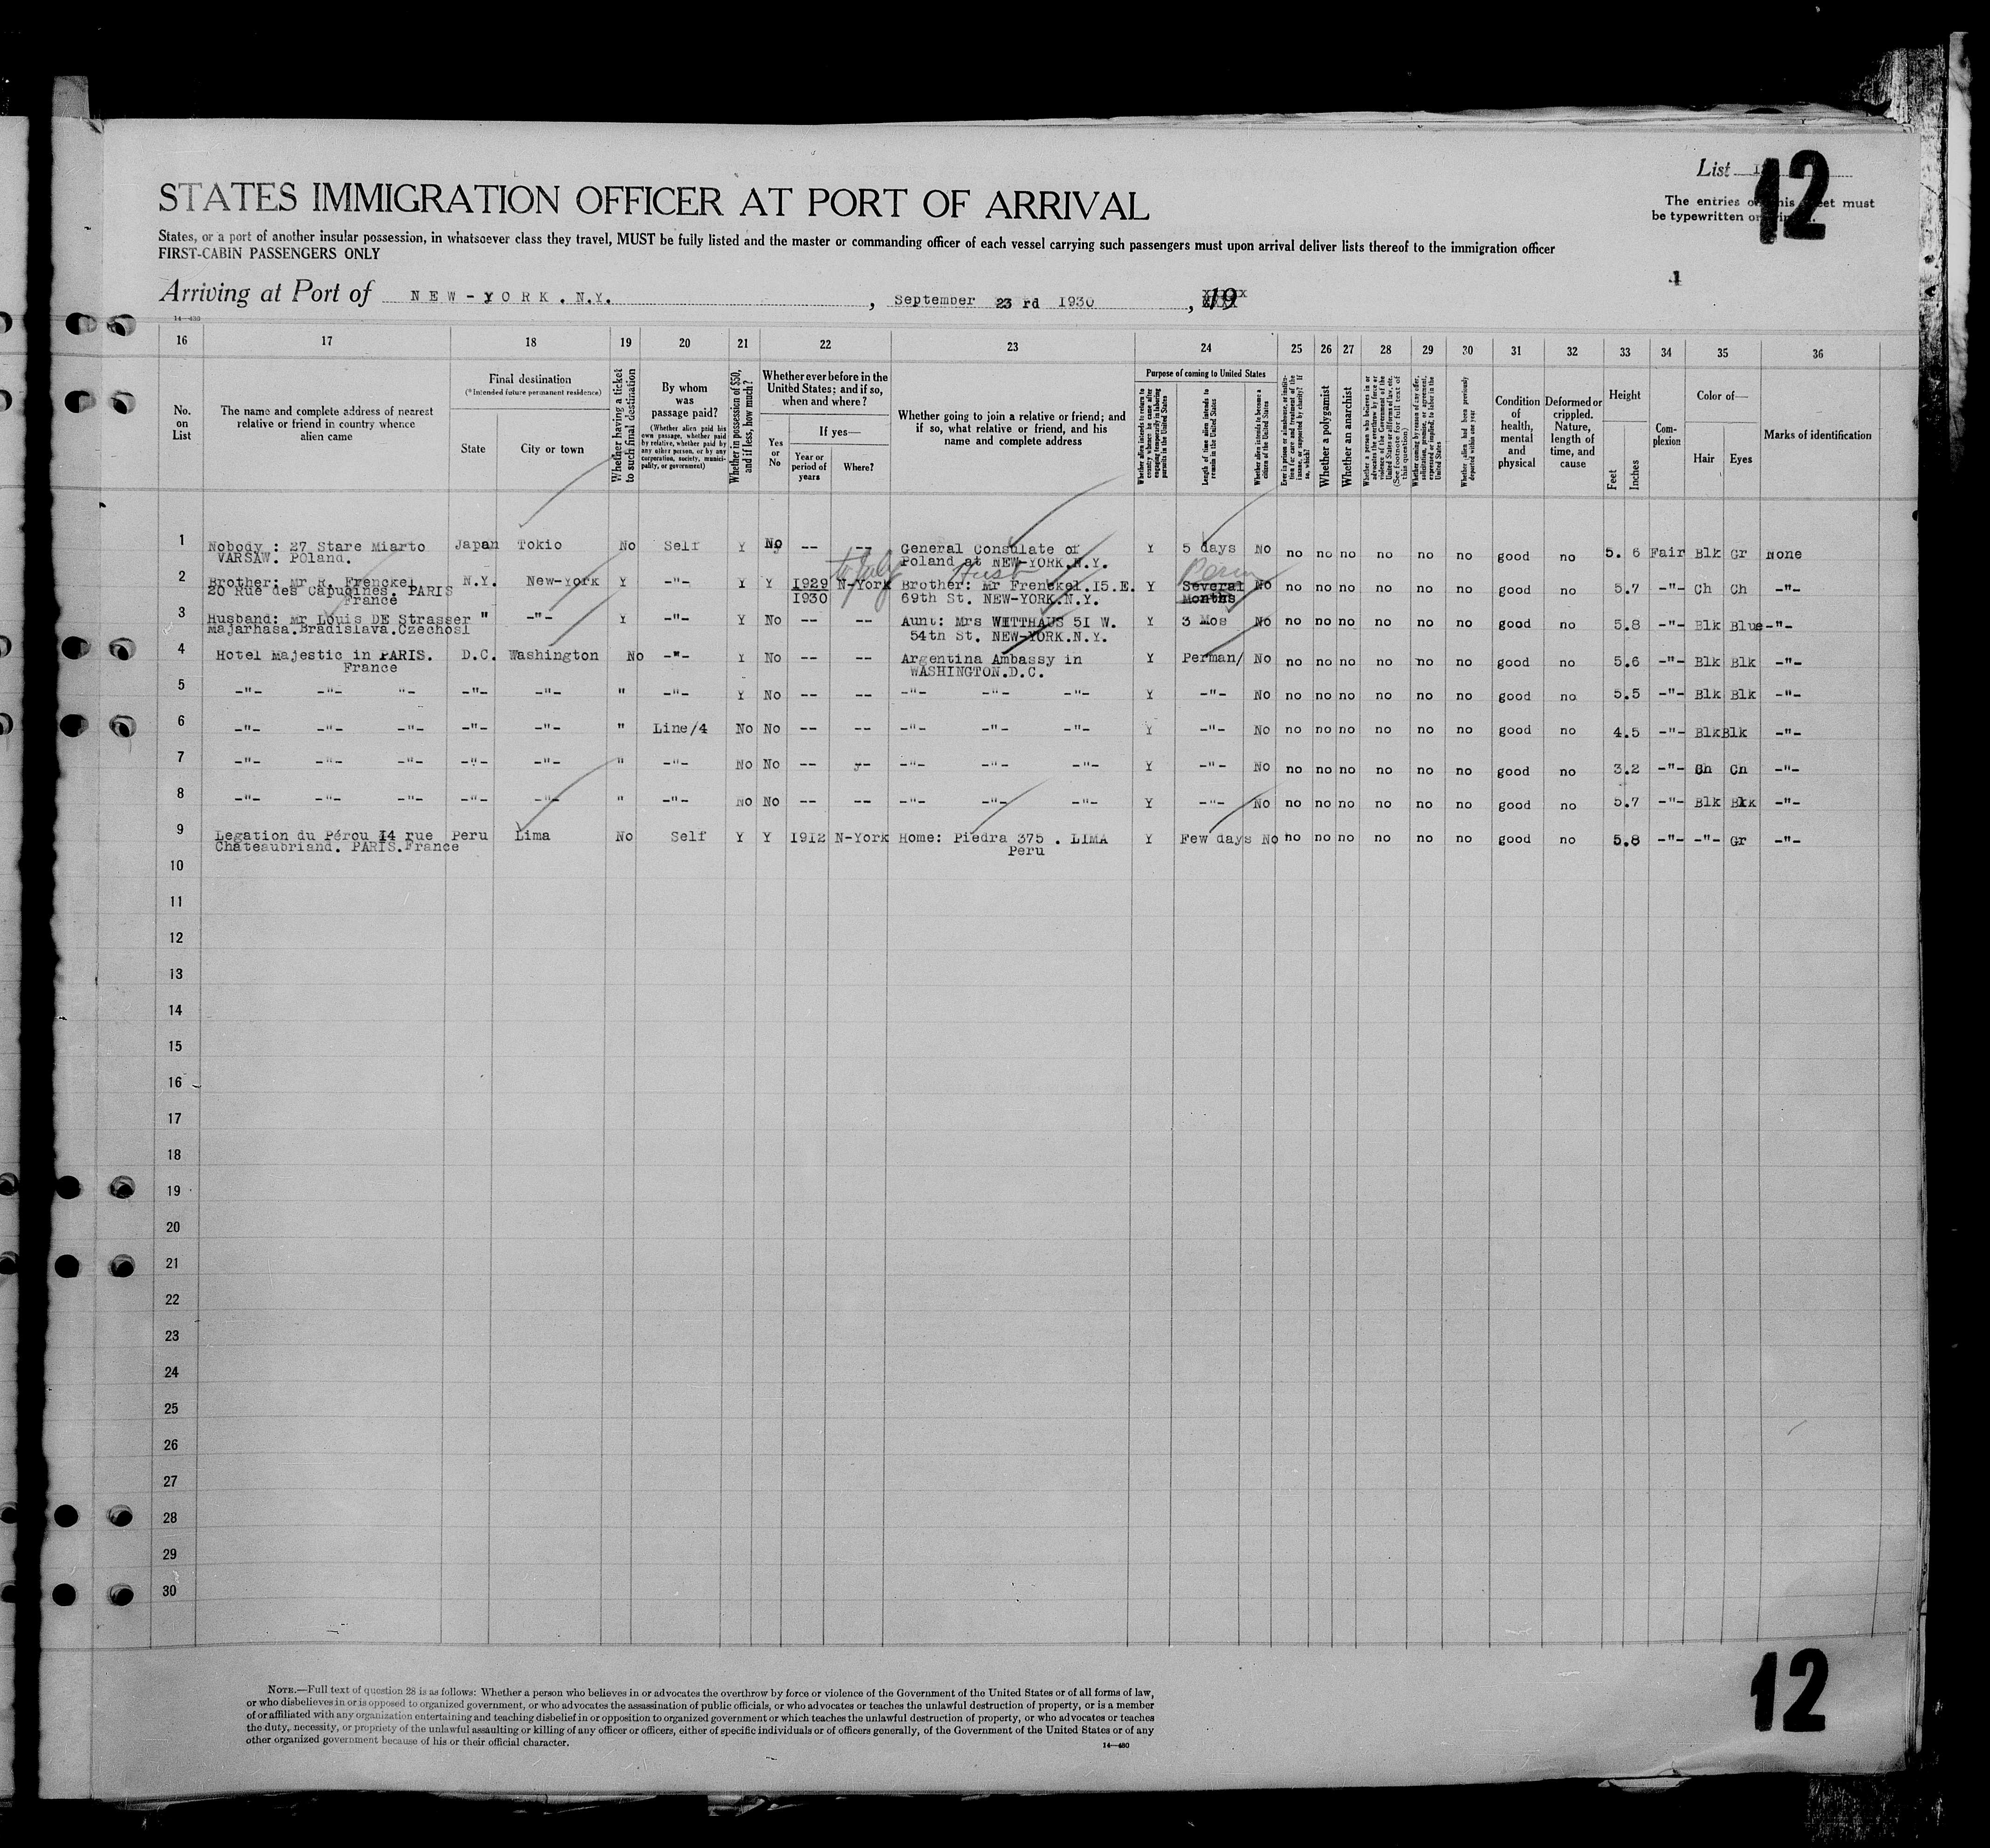 List
12
The entries on this sheet must
be typewritten or printed.
STATES IMMIGRATION OFFICER AT PORT OF ARRIVAL
States, or a port of another insular possession, in whatsoever class they travel, MUST be fully listed and the master or commanding officer of each vessel carrying such passengers must upon arrival deliver lists thereof to the immigration officer
FIRST-CABIN PASSENGERS ONLY
Arriving at Port of NEW-YORK.N.Y., September 23 rd 1930, 19
16 17 18 19 20 21 22 23 24 25 26 27 28 29 30 31 32 33 34 35 36
No. on List
The name and complete address of nearest relative or friend in country whence alien came
Final destination
(*Intended future permanent residence)
State
City or town
Whether having a ticket to such final destination
By whom was passage paid?
(Whether alien paid his own passage, whether paid by relative, whether paid by any other person, or by any corporation, society, municipality, or government)
Whether in possession of $50, and if less, how much?
Whether ever before in the United States; and if so, when and where?
Yes or No
If yes—
Year or period of years
Where?
Whether going to join a relative or friend; and if so, what relative or friend, and his name and complete address
Purpose of coming to United States
Whether alien intends to return to country whence he came after engaging temporarily in laboring pursuits in the United States
Length of time alien intends to remain in the United States
Whether alien intends to become a citizen of the United States
Ever in prison or almshouse, or institution for care and treatment of the insane, or supported by charity? If so, which?
Whether a polygamist
Whether an anarchist
Whether a person who believes in or advocates the overthrow by force or violence of the Government of the United States or all forms of law, etc. (See footnote for full text of this question)
Whether coming by reason of any offer, solicitation, promise, or agreement, expressed or implied, to labor in the United States
Whether alien had been previously deported within one year
Condition of health, mental and physical
Deformed or crippled. Nature, length of time, and cause
Height
Feet
Inches
Complexion
Color of—
Hair
Eyes
Marks of identification
1 Nobody : 27 Stare Miarto Japan Tokio No Self Y No -- -- General Consulate of Y 5 days No no no no no no no good no 5. 6 Fair Blk Gr None
VARSAW. Poland. Poland at NEW-YORK.N.Y.
2 Brother: Mr R. Frenckel N.Y. New-York Y -"- Y Y 1929 N-York Brother: Mr Frenckel.15.E. Y Several No no no no no no no good no 5.7 -"- Ch Ch -"-
20 Rue des Capucines. PARIS 1930 69th St. NEW-YORK.N.Y. Months
France
Perm
3 Husband: Mr Louis DE Strasser " -"- Y -"- Y No -- -- Aunt: Mrs WITTHAUS 51 W. Y 3 Mos No no no no no no no good no 5.8 -"- Blk Blue -"-
Majarhasa.Bradislava.Czechosl 54th St. NEW-YORK.N.Y.
4 Hotel Majestic in PARIS. D.C. Washington No -"- Y No -- -- Argentina Ambassy in Y Perman/ No no no no no no no good no 5.6 -"- Blk Blk -"-
France WASHINGTON.D.C.
5 -"- -"- "- -"- -"- " -"- Y No -- -- -"- -"- -"- Y -"- No no no no no no no good no 5.5 -"- Blk Blk -"-
6 -"- -"- -"- -"- -"- " Line/4 No No -- -- -"- -"- -"- Y -"- No no no no no no no good no 4.5 -"- Blk Blk -"-
7 -"- -"- -"- -"- -"- " -"- No No -- -- -"- -"- -"- Y -"- No no no no no no no good no 3.2 -"- Ch Ch -"-
8 -"- -"- -"- -"- -"- " -"- No No -- -- -"- -"- -"- Y -"- No no no no no no no good no 5.7 -"- Blk Blk -"-
9 Legation du Pérou 14 rue Peru Lima No Self Y Y 1912 N-York Home: Piedra 375 . LIMA Y Few days No no no no no no no good no 5.8 -"- -"- Gr -"-
Châteaubriand. PARIS.France Peru
10
11
12
13
14
15
16
17
18
19
20
21
22
23
24
25
26
27
28
29
30
NOTE.—Full text of question 28 is as follows: Whether a person who believes in or advocates the overthrow by force or violence of the Government of the United States or of all forms of law,
or who disbelieves in or is opposed to organized government, or who advocates the assassination of public officials, or who advocates or teaches the unlawful destruction of property, or is a member
of or affiliated with any organization entertaining and teaching disbelief in or opposition to organized government or which teaches the unlawful destruction of property, or who advocates or teaches
the duty, necessity, or propriety of the unlawful assaulting or killing of any officer or officers, either of specific individuals or of officers generally, of the Government of the United States or of any
other organized government because of his or their official character.
14—480
12